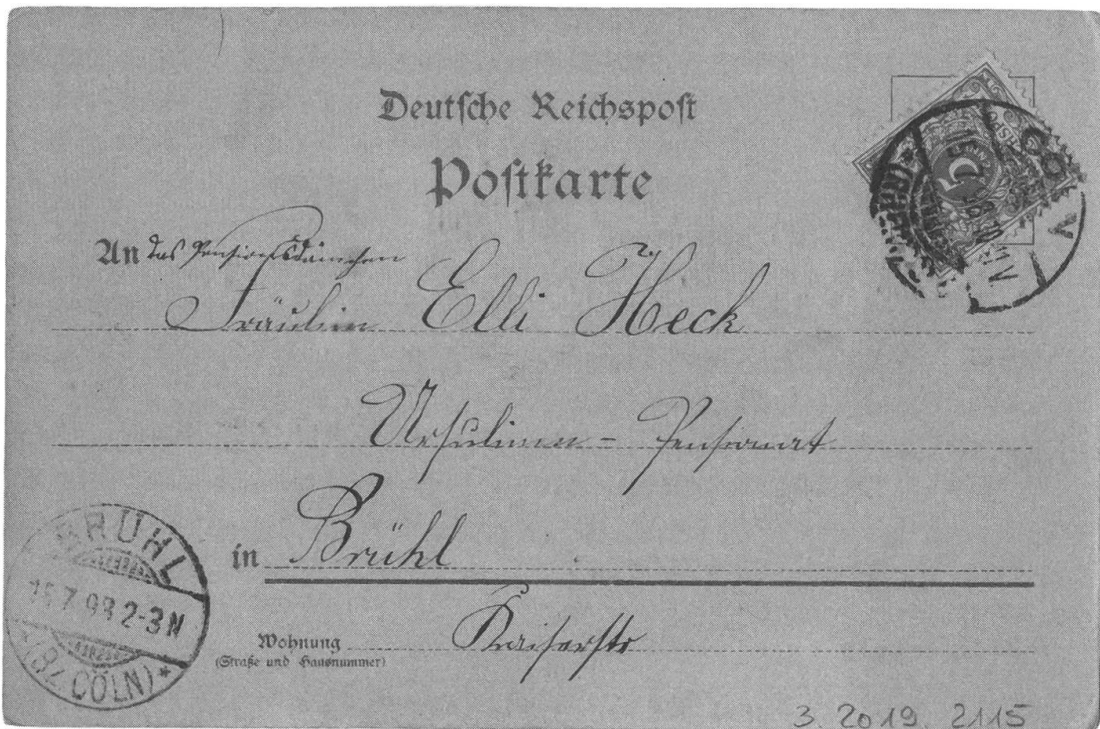 Deutsche Reichspost
Postkarte
An das Pensionsdämchen
Fräulein Elli Heck
Ursulinen - Pensionat
in Brühl
Wohnung Kaiserstr
(Straße und Hausnummer)
5
BRÜHL
15.7.98 2-3N
*(BZ CÖLN)*
3. 2019. 2115